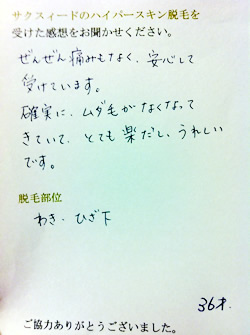 サクスィードのハイパースキン脱毛を
受けた感想をお聞かせください。
ぜんぜん痛みもなく、安心して
受けています。
確実に、ムダ毛がなくなって
きていて、とても楽だし、うれしい
です。
脱毛部位
わき・ひざ下
36才.
ご協力ありがとうございました。